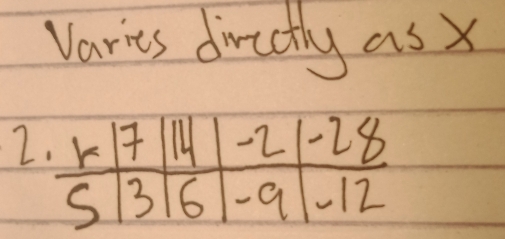 Varies directly as X
2. r 7 14 -2 -28
S 3 6 -9 -12